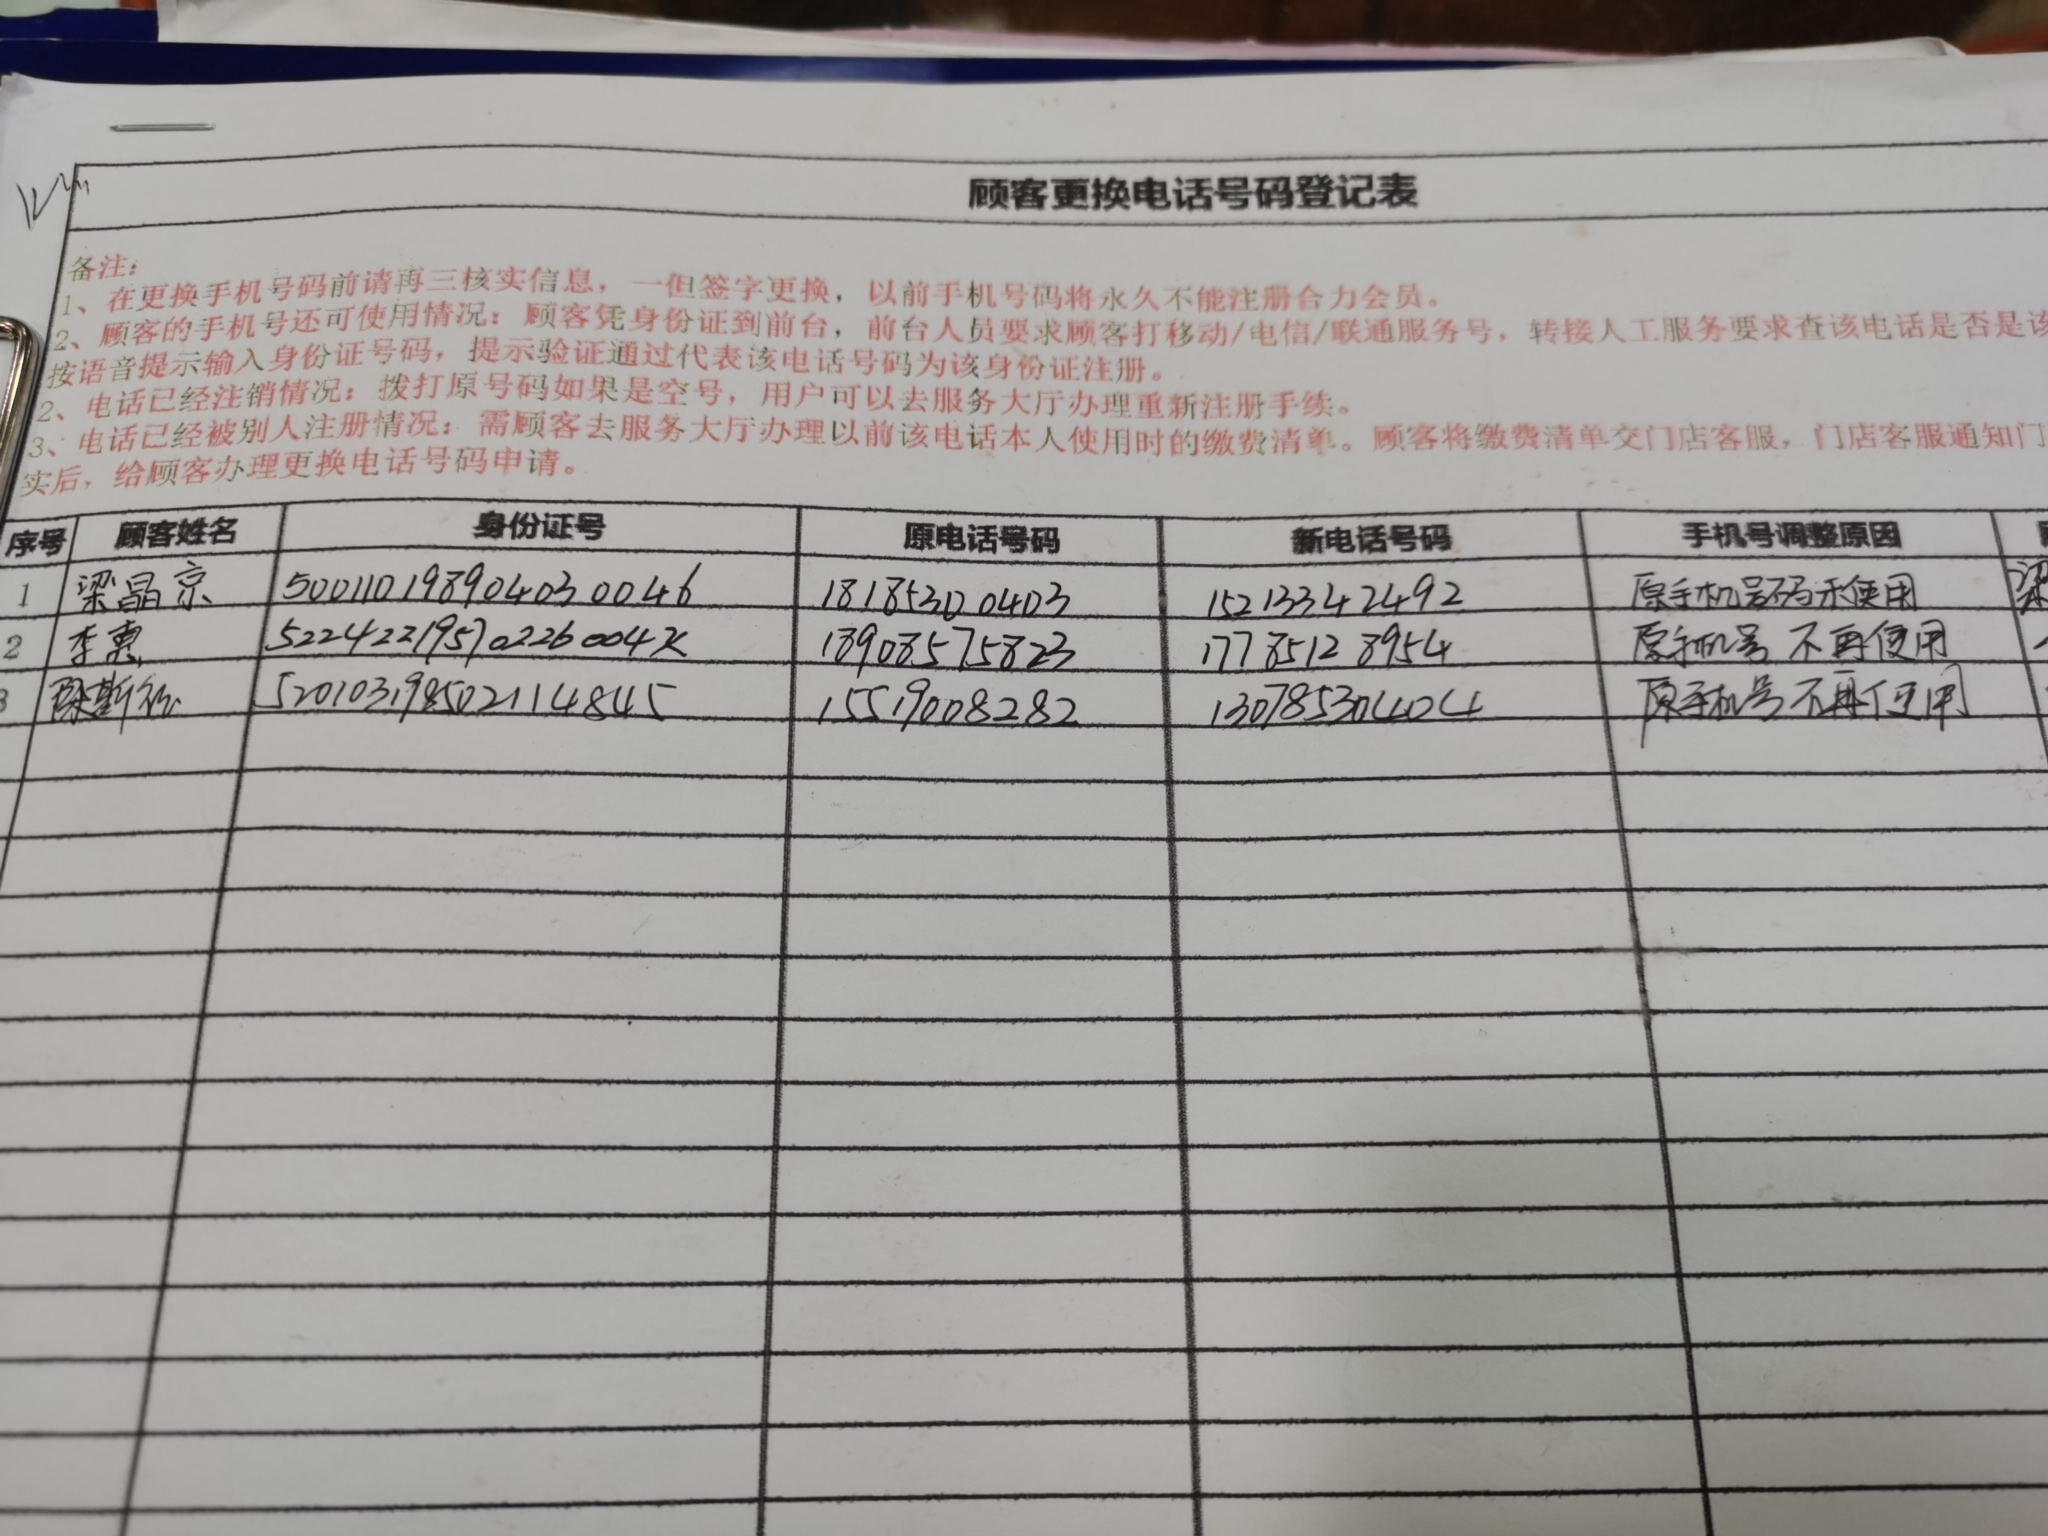 顾客更换电话号码登记表
备注：
1、在更换手机号码前请再三核实信息，一但签字更换，以前手机号码将永久不能注册合力会员。
2、顾客的手机号还可使用情况：顾客凭身份证到前台，前台人员要求顾客打移动/电信/联通服务号，转接人工服务要求查该电话是否是该
按语音提示输入身份证号码，提示验证通过代表该电话号码为该身份证注册。
2、电话已经注销情况：拨打原号码如果是空号，用户可以去服务大厅办理重新注册手续。
3、电话已经被别人注册情况：需顾客去服务大厅办理以前该电话本人使用时的缴费清单。顾客将缴费清单交门店客服，门店客服通知门
实后，给顾客办理更换电话号码申请。
序号 顾客姓名 身份证号 原电话号码 新电话号码 手机号调整原因
1 梁晶京 500110198904030046 18185300403 15213342492 原手机号码未使用 梁
2 李惠 52242219570226004X 18908575823 17785128954 原手机号不再使用
3 520103198502114845 15519008282 13078530404 原手机号不再使用